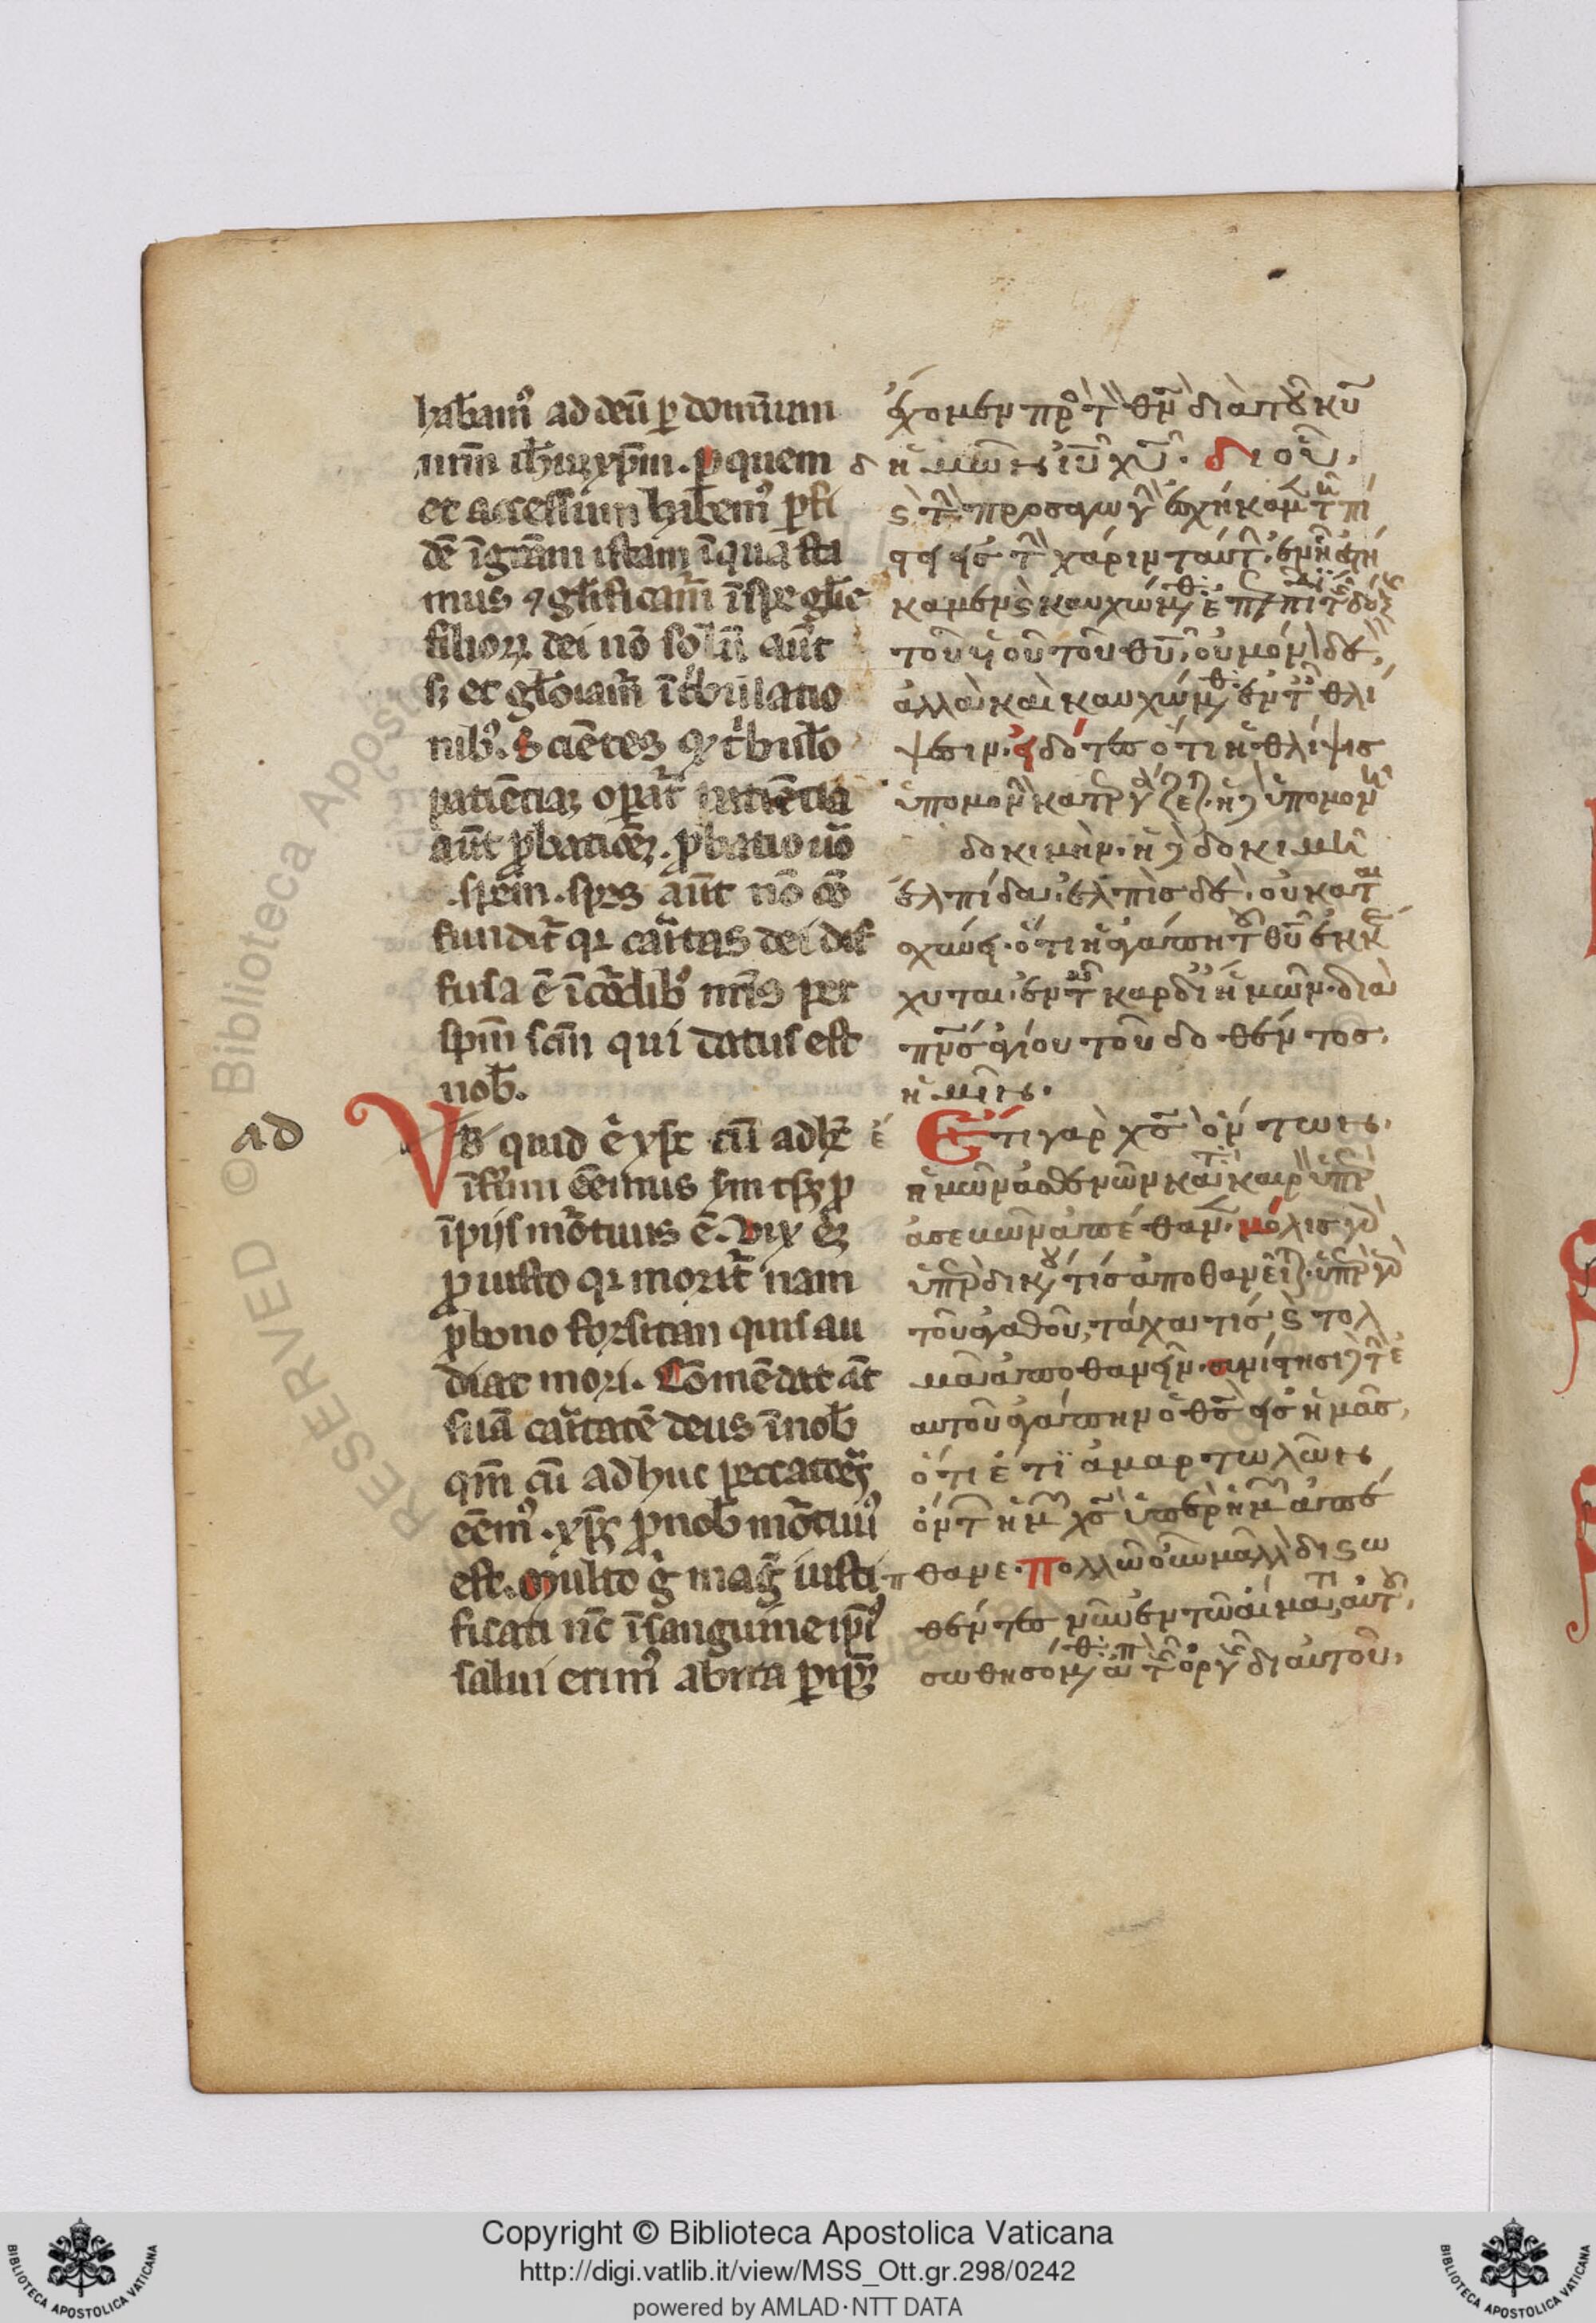 habeam⁹ ad deū ꝑ dominum
nr̄m ih̄m xp̄m. ꝑ quem
et accessum habem⁹ ꝑ fi
dē ī grām istam ī qua sta
mus ⁊ gl̄ificam̄ ī spe gl̄ie
filioꝝ dei nō solū aūt
sꝫ et gl̄oriam̄ ī tribulatio
nib⁹. Sciētes qꝫ tribul̄o
patiētiaꝫ oꝑat̄ patiētia
aūt ꝓbationēꝫ. ꝓbatio ūo
spem. spes aūt nō cō
fundit̄ qꝛ caritas dei dif
fusa ē ī cordib⁹ nr̄is per
spm̄ scm̄ qui datus est
nob̄.
ad
Vt quid ē xp̄c cū adhc̄
īfirmi eēmus scm̄ tp̄ꝫ ꝓ
īpijs mōtuus ē. Vix eīꝫ
ꝓ iusto qꝛ morit̄ nam
ꝓ bono forsitan quis au
diat mori. Cōmēdat āt
suā caritatē deus ī nob̄
qm̄ cū adhuc peccatores
eēm⁹. xp̄ꝫ ꝓ nob̄ mōtuu⁹
est. Multo g̊ mag̊ iusti
ficati nc̄ ī sanguine ip̄i⁹
salui erim⁹ ab ira ꝑ ip̄ꝫ
ἔχομεν πρὸς τὸν θν̄ διὰ τοῦ κῡ
ἡμῶν ιῡ χῡ. δι οὗ,
ϛ τὴν προσαγωγὴν ἐσχήκαμεν τῇ πί
στει εἰς τὴν χάριν ταύτην. ἐν ᾗ ἑστή
καμεν ϛ καυχώμεθα ἐπ ἐλπίδι τῆς δόξης
τοῦ υἱοῦ τοῦ θῡ, οὐ μόνον δέ,
ἀλλὰ καὶ καυχώμεθα ἐν ταῖς θλί
ψεσιν. εἰδότες ὅτι ἡ θλίψις
ὑπομονὴν κατεργάζεται. ἡ δὲ ὑπομονὴ
δοκιμήν. ἡ δὲ δοκιμὴ
ἐλπίδα. ἐλπὶς δὲ, οὐ κατ
αισχύνει. ὅτι ἡ ἀγάπη τοῦ θῡ ἐκκέ
χυται. ἐν ταῖς καρδίαις ἡμῶν. διὰ
πν̄ς ἁγίου τοῦ δοθέντος.
ἡμῖν.
Ἔτι γὰρ χς̄ ὄντων.
ἡμῶν ἀσθενῶν κατὰ καιρὸν ὑπὲρ
ἀσεβῶν ἀπέθανεν. μόλις γὰρ
ὑπὲρ δικαίου τίς ἀποθανεῖται. ὑπὲρ γὰρ
τοῦ ἀγαθοῦ, τάχα τίς ϛ τολ
μᾶ ἀποθανεῖν. συνίστησι δὲ τὴν ἑ
αυτοῦ ἀγάπην ὁ θς̄ εἰς ἡμᾶς,
ὅτι ἔτι ἁμαρτωλῶν
ὄντων ἡμῶν χς̄ ὑπὲρ ἡμῶν ἀπέ
θανε. Πολλῶ οὖν μᾶλλον δικαιω
θέντες νῦν ἐν τῶ αἵματι αὐτοῦ,
σωθησόμεθα ἀπὸ τῆς ὀργῆς δι αὐτοῦ,
RESERVED © Biblioteca Apostolica Vaticana
Copyright © Biblioteca Apostolica Vaticana
http://digi.vatlib.it/view/MSS_Ott.gr.298/0242
powered by AMLAD·NTT DATA
BIBLIOTECA APOSTOLICA VATICANA
BIBLIOTECA APOSTOLICA VATICANA